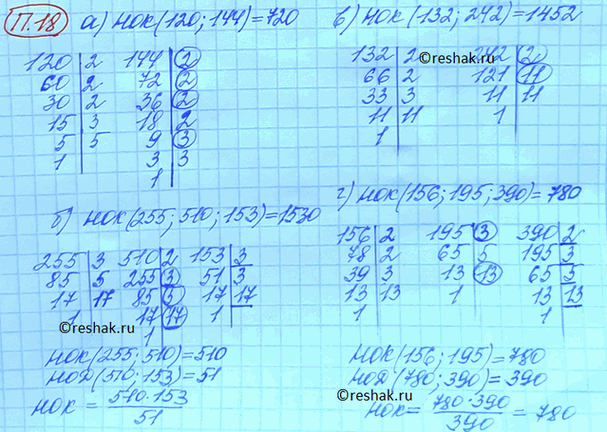 П.18 а) НОК(120; 144)=720
120 | 2 144 | 2
60 | 2 72 | 2
30 | 2 36 | 2
15 | 3 18 | 2
5 | 5 9 | 3
1 3 | 3
1
б) НОК(255; 510; 153)=1530
255 | 3 510 | 2 153 | 3
85 | 5 255 | 3 51 | 3
17 | 17 85 | 5 17 | 17
1 17 | 17 1
1
©reshak.ru
НОК(255; 510)=510
НОД(510; 153)=51
НОК = 510·153
51
в) НОК(132; 242)=1452
©reshak.ru
132 | 2 242 | 2
66 | 2 121 | 11
33 | 3 11 | 11
11 | 11 1
1
г) НОК(156; 195; 390)=780
156 | 2 195 | 3 390 | 2
78 | 2 65 | 5 195 | 3
39 | 3 13 | 13 65 | 5
13 | 13 1 13 | 13
1 1
НОК(156; 195)=780
НОД(780; 390)=390
©reshak.ru
НОК = 780·390 = 780
390